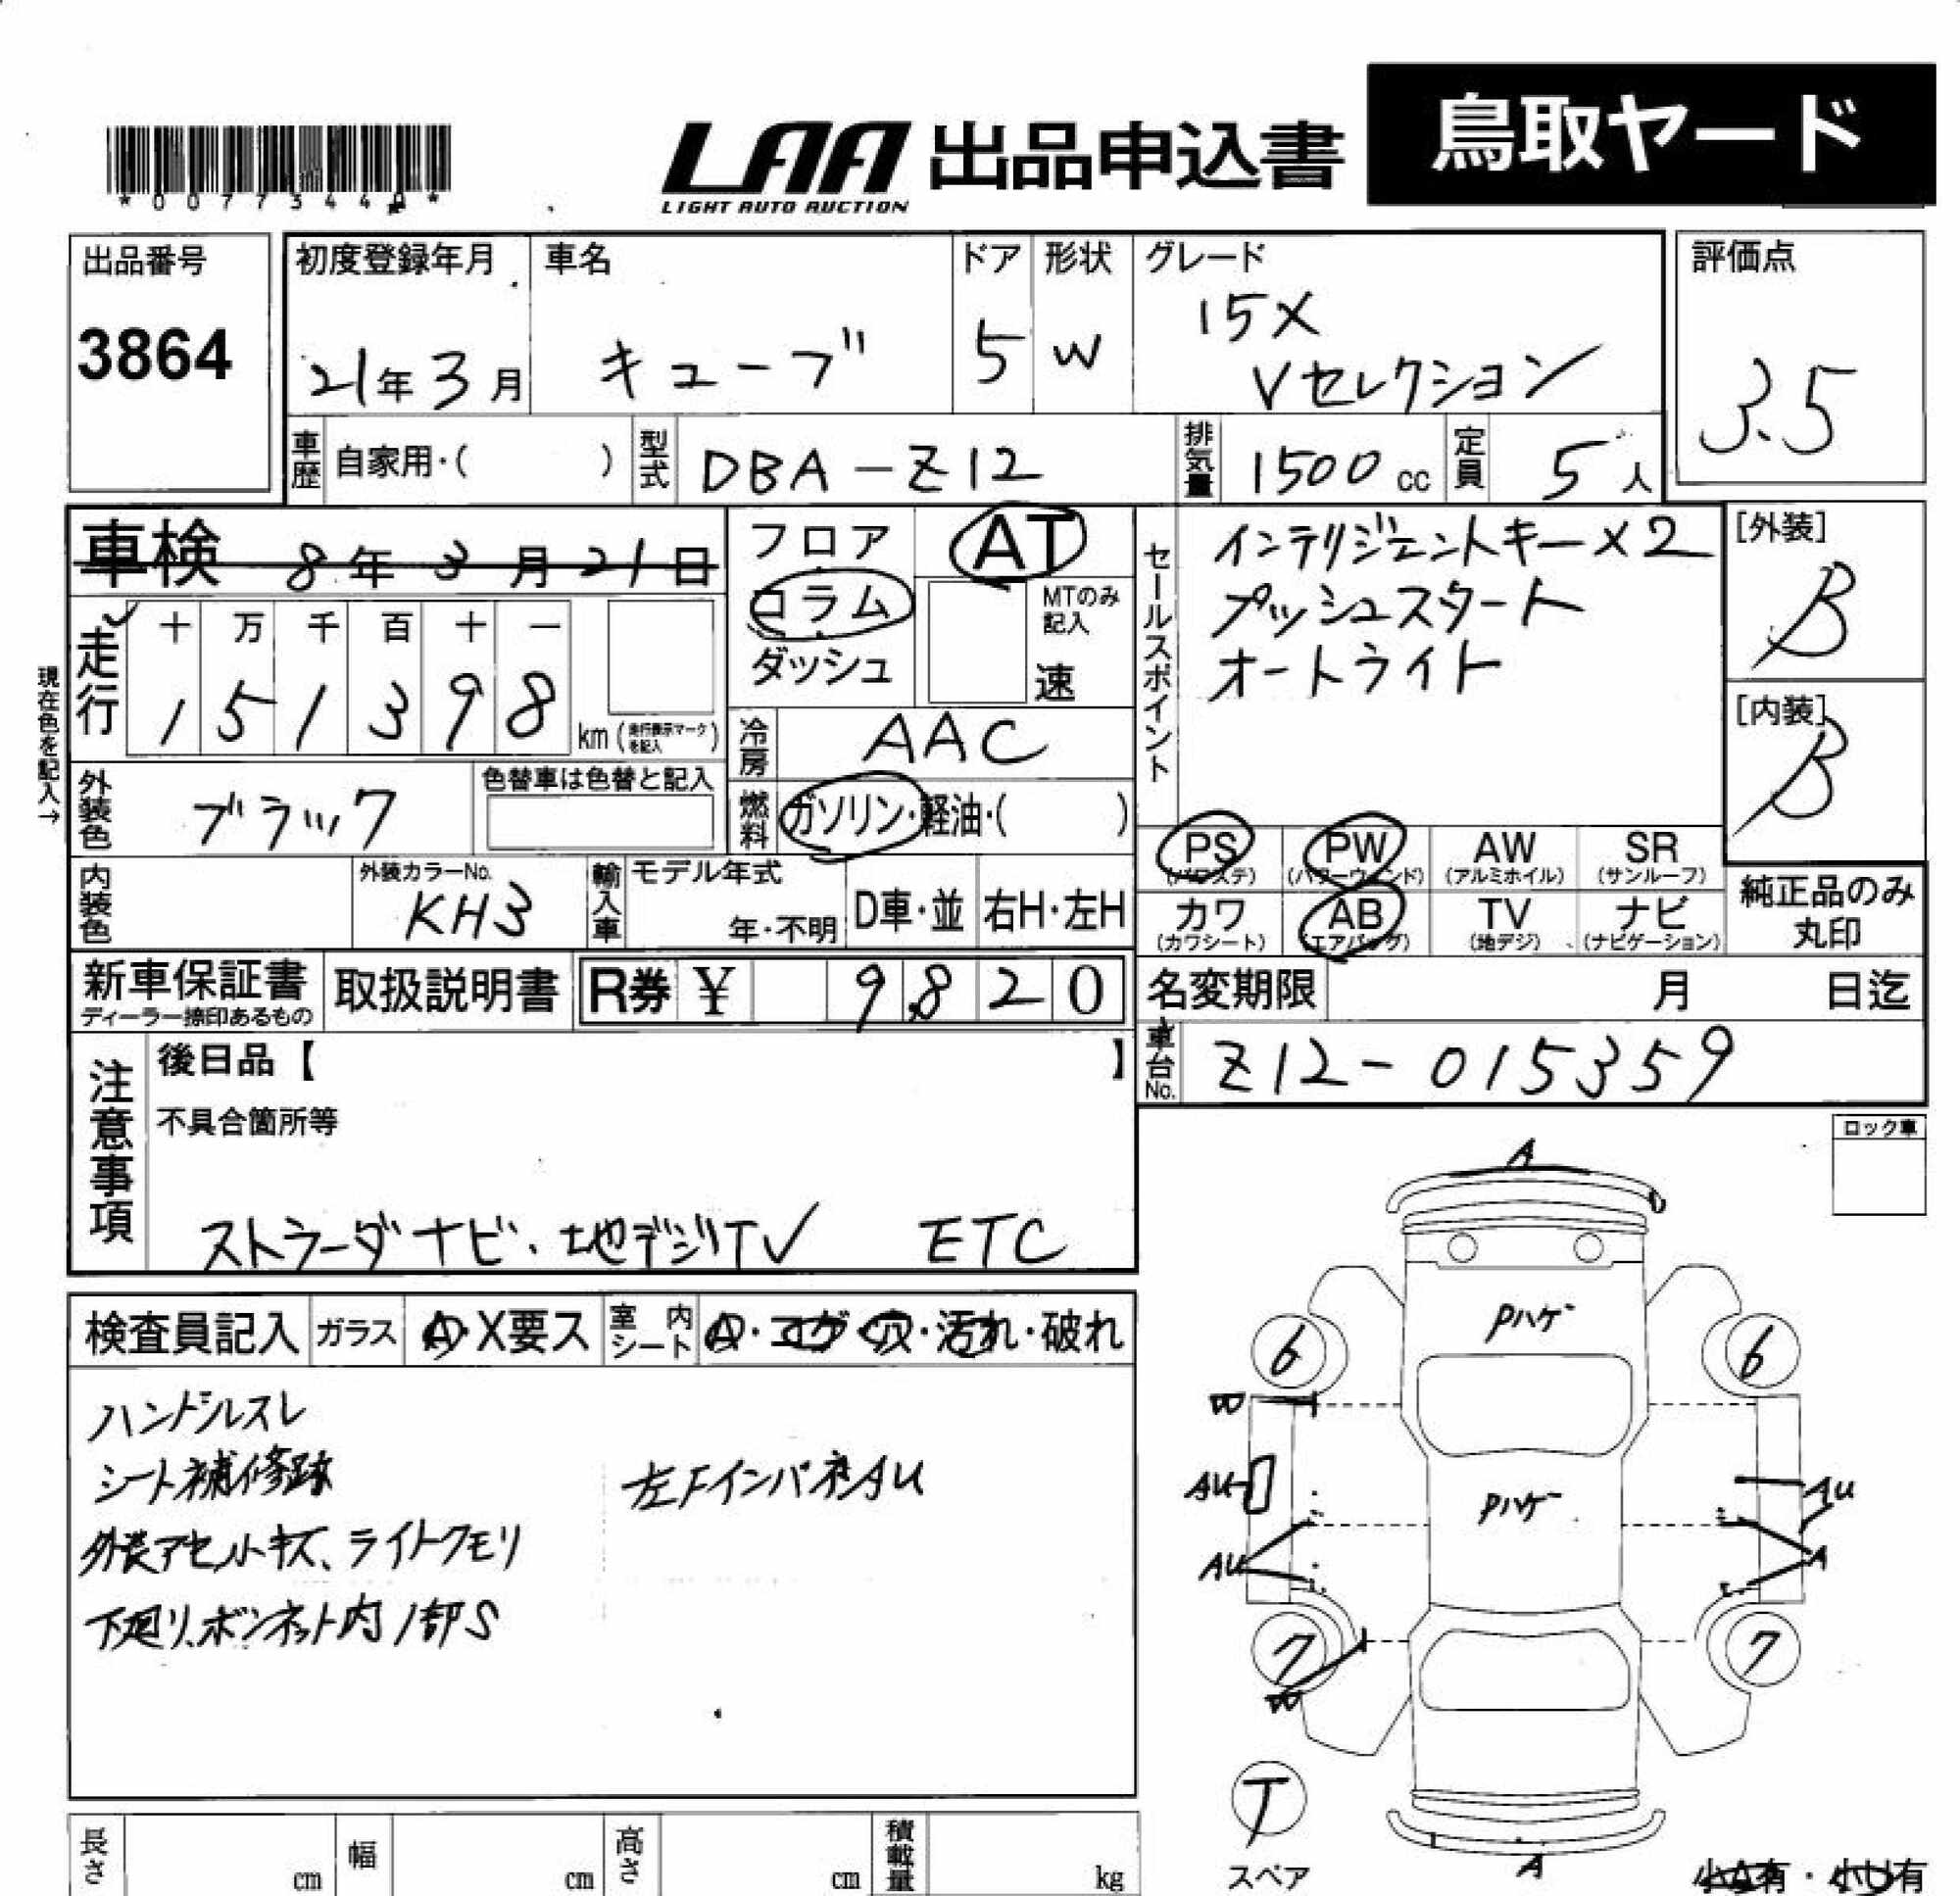 *00773440*
LAA 出品申込書 鳥取ヤード
LIGHT AUTO AUCTION
出品番号
3864
初度登録年月
21年3月
車名
キューブ
ドア
5
形状
W
グレード
15X
Vセレクション
評価点
3.5
車歴 自家用・( )
型式 DBA-Z12
排気量 1500cc
定員 5人
車検 8年3月21日
フロア
コラム
ダッシュ
AT
MTのみ
記入
速
セールスポイント
インテリジェントキー×2
プッシュスタート
オートライト
[外装]
B
[内装]
B
現在色を記入→
走行
十 万 千 百 十 一
1 5 1 3 9 8
km (走行表示マークを記入)
冷房 AAC
燃料 ガソリン・軽油・( )
外装色 ブラック
色替車は色替と記入
内装色
外装カラーNo.
KH3
輸入車
モデル年式
年・不明
D車・並
右H・左H
PS
(パワステ)
PW
(パワーウィンド)
AW
(アルミホイル)
SR
(サンルーフ)
カワ
(カワシート)
AB
(エアバッグ)
TV
(地デジ)
ナビ
(ナビゲーション)
純正品のみ
丸印
新車保証書
ディーラー捺印あるもの
取扱説明書
R券 ¥ 9,820
名変期限 月 日迄
車台No. Z12-015359
注意事項
後日品【 】
不具合箇所等
ストラーダナビ、地デジTV ETC
ロック車
検査員記入
ガラス A・X要ス
室内シート A・コゲ・穴・汚れ・破れ
ハンドルスレ
シート補修跡
左Fインパネ AU
外装アセ小キズ、ライトクモリ
下廻り、ボンネット内1部S
A
Pハゲ
6
6
W
AU
Pハゲ
AU
AU
A
7
7
W
T
スペア
A
小A有・小U有
長さ cm
幅 cm
高さ cm
積載量 kg